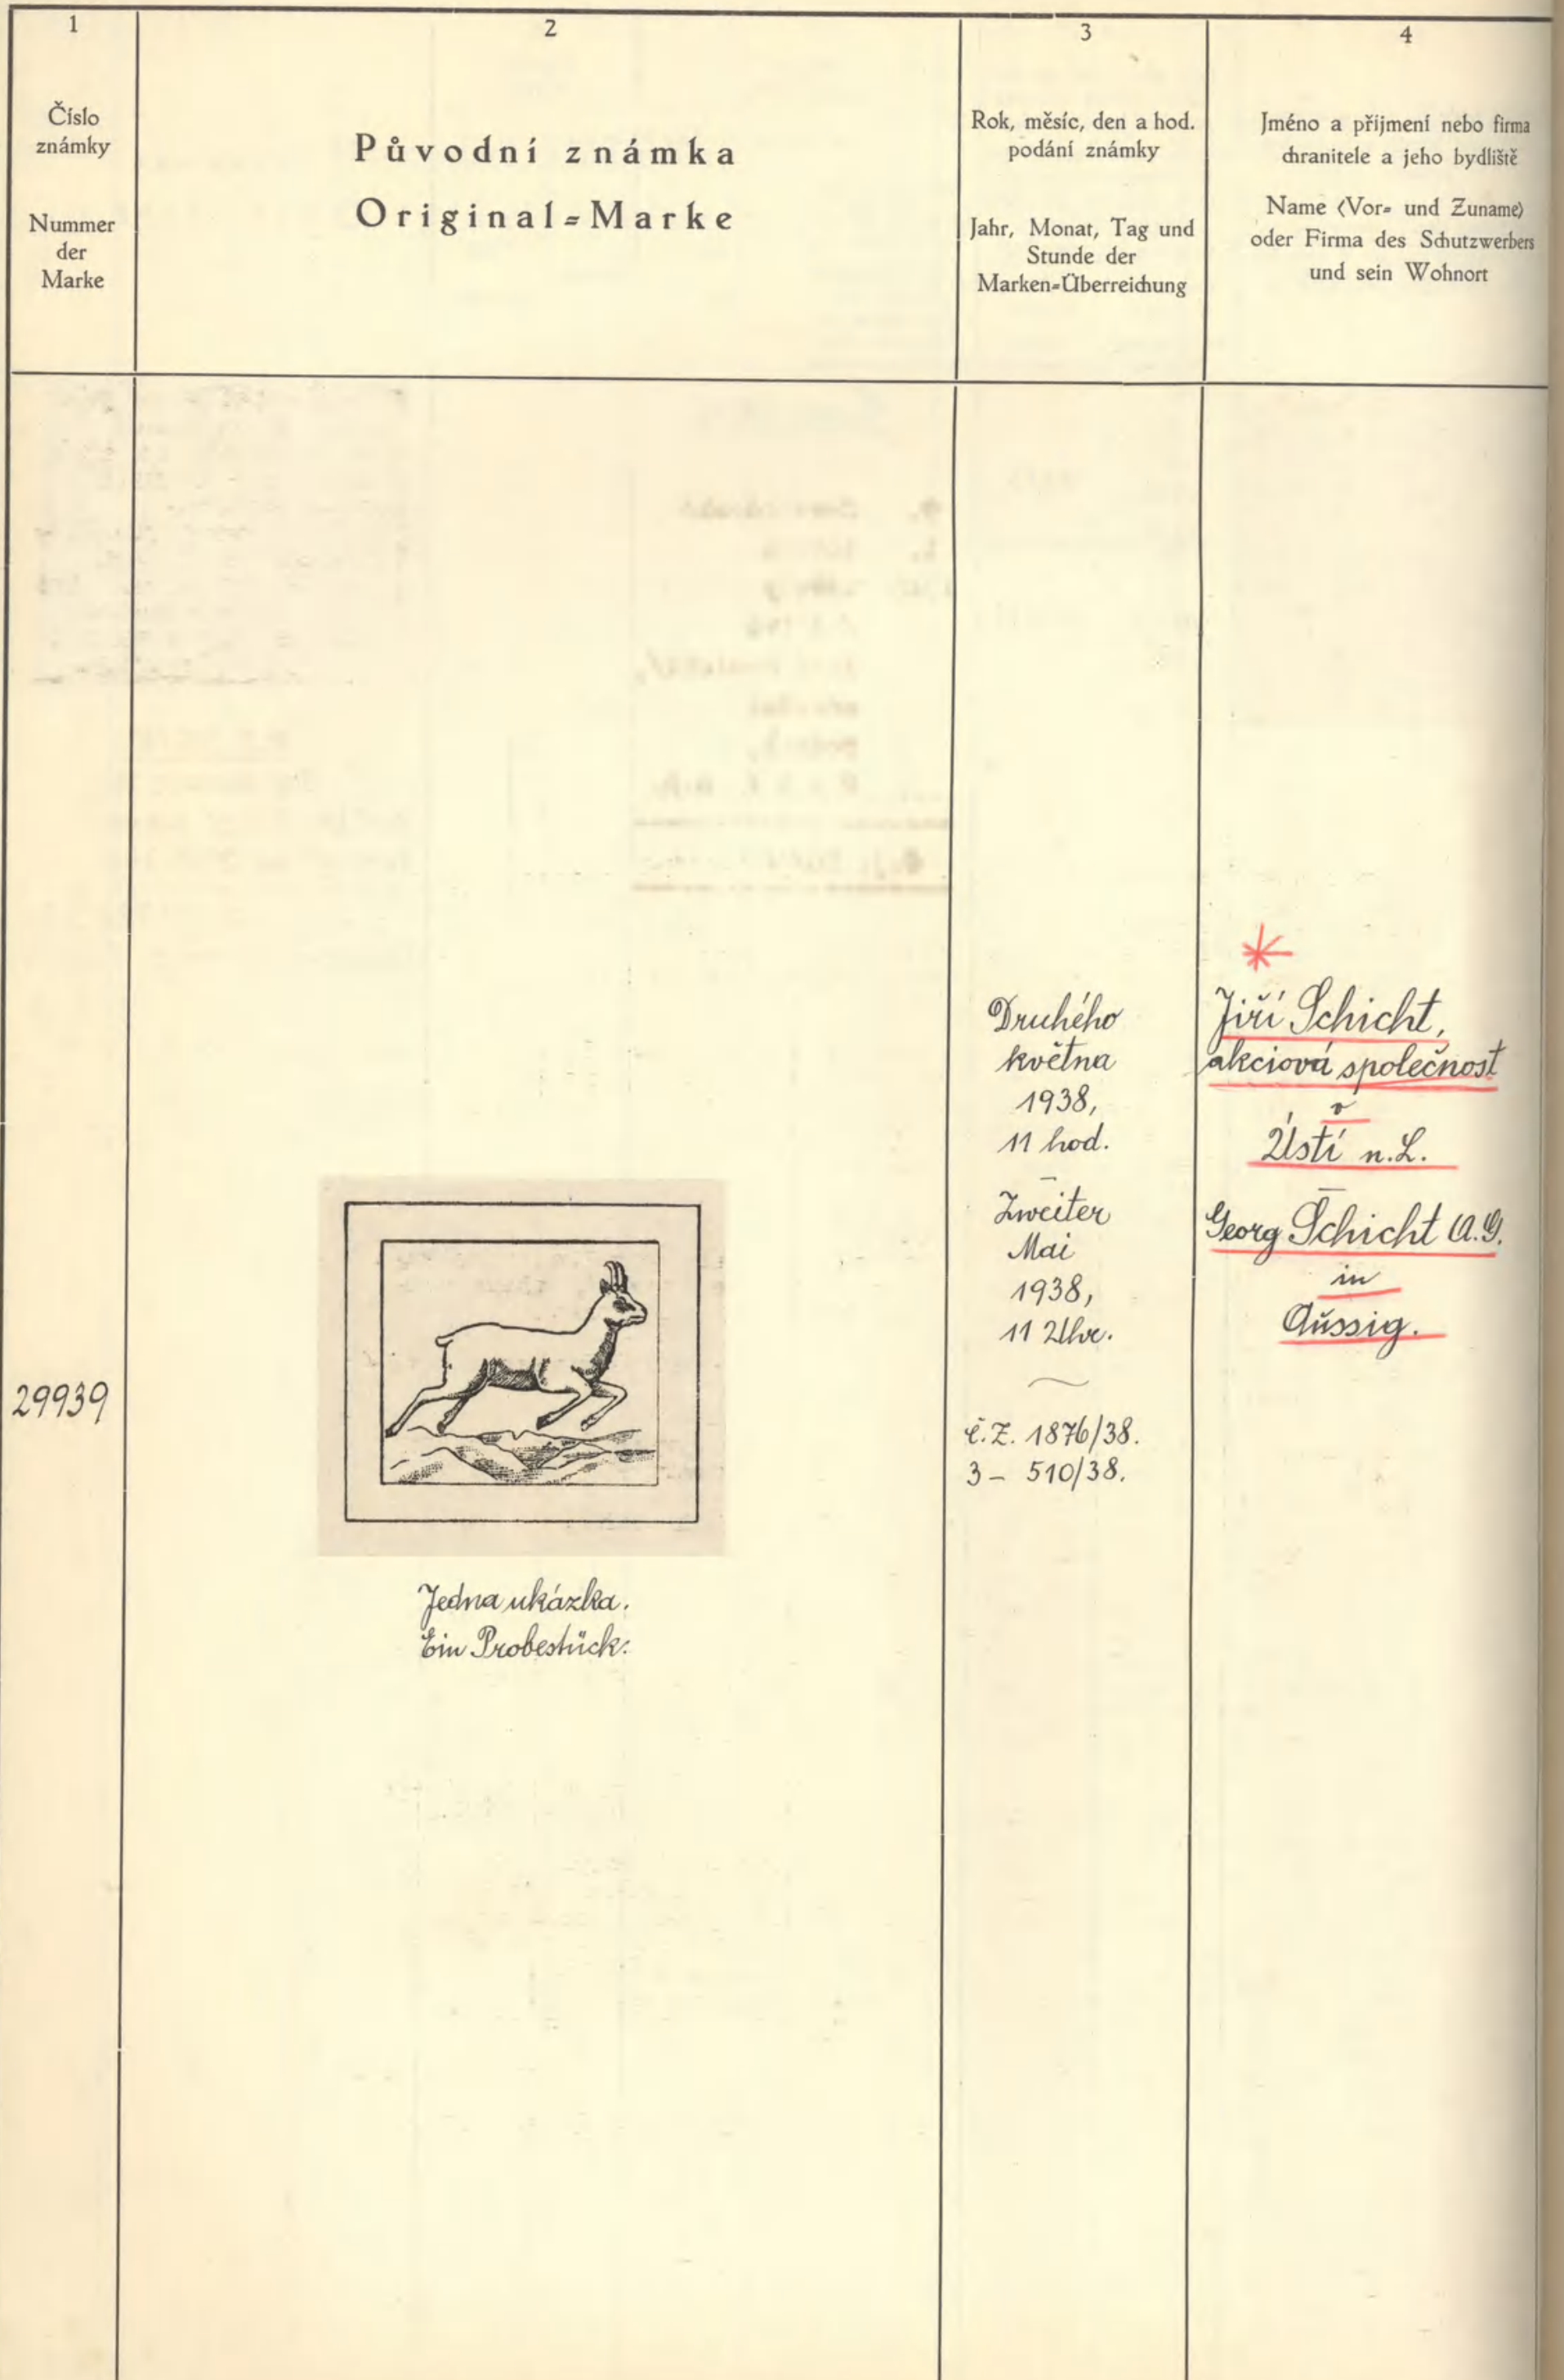 1
Číslo
známky
Nummer
der
Marke
2
Původní známka
Original=Marke
3
Rok, měsíc, den a hod.
podání známky
Jahr, Monat, Tag und
Stunde der
Marken=Überreichung
4
Jméno a příjmení nebo firma
chranitele a jeho bydliště
Name (Vor= und Zuname)
oder Firma des Schutzwerbers
und sein Wohnort
29939
Jedna ukázka.
Ein Probestück.
Druhého
května
1938,
11 hod.
Zweiter
Mai
1938,
11 Uhr.
č.Z. 1876/38.
3 - 510/38.
Jiří Schicht,
akciová společnost
v
Ústí n.L.
Georg Schicht A.G.
in
Aussig.